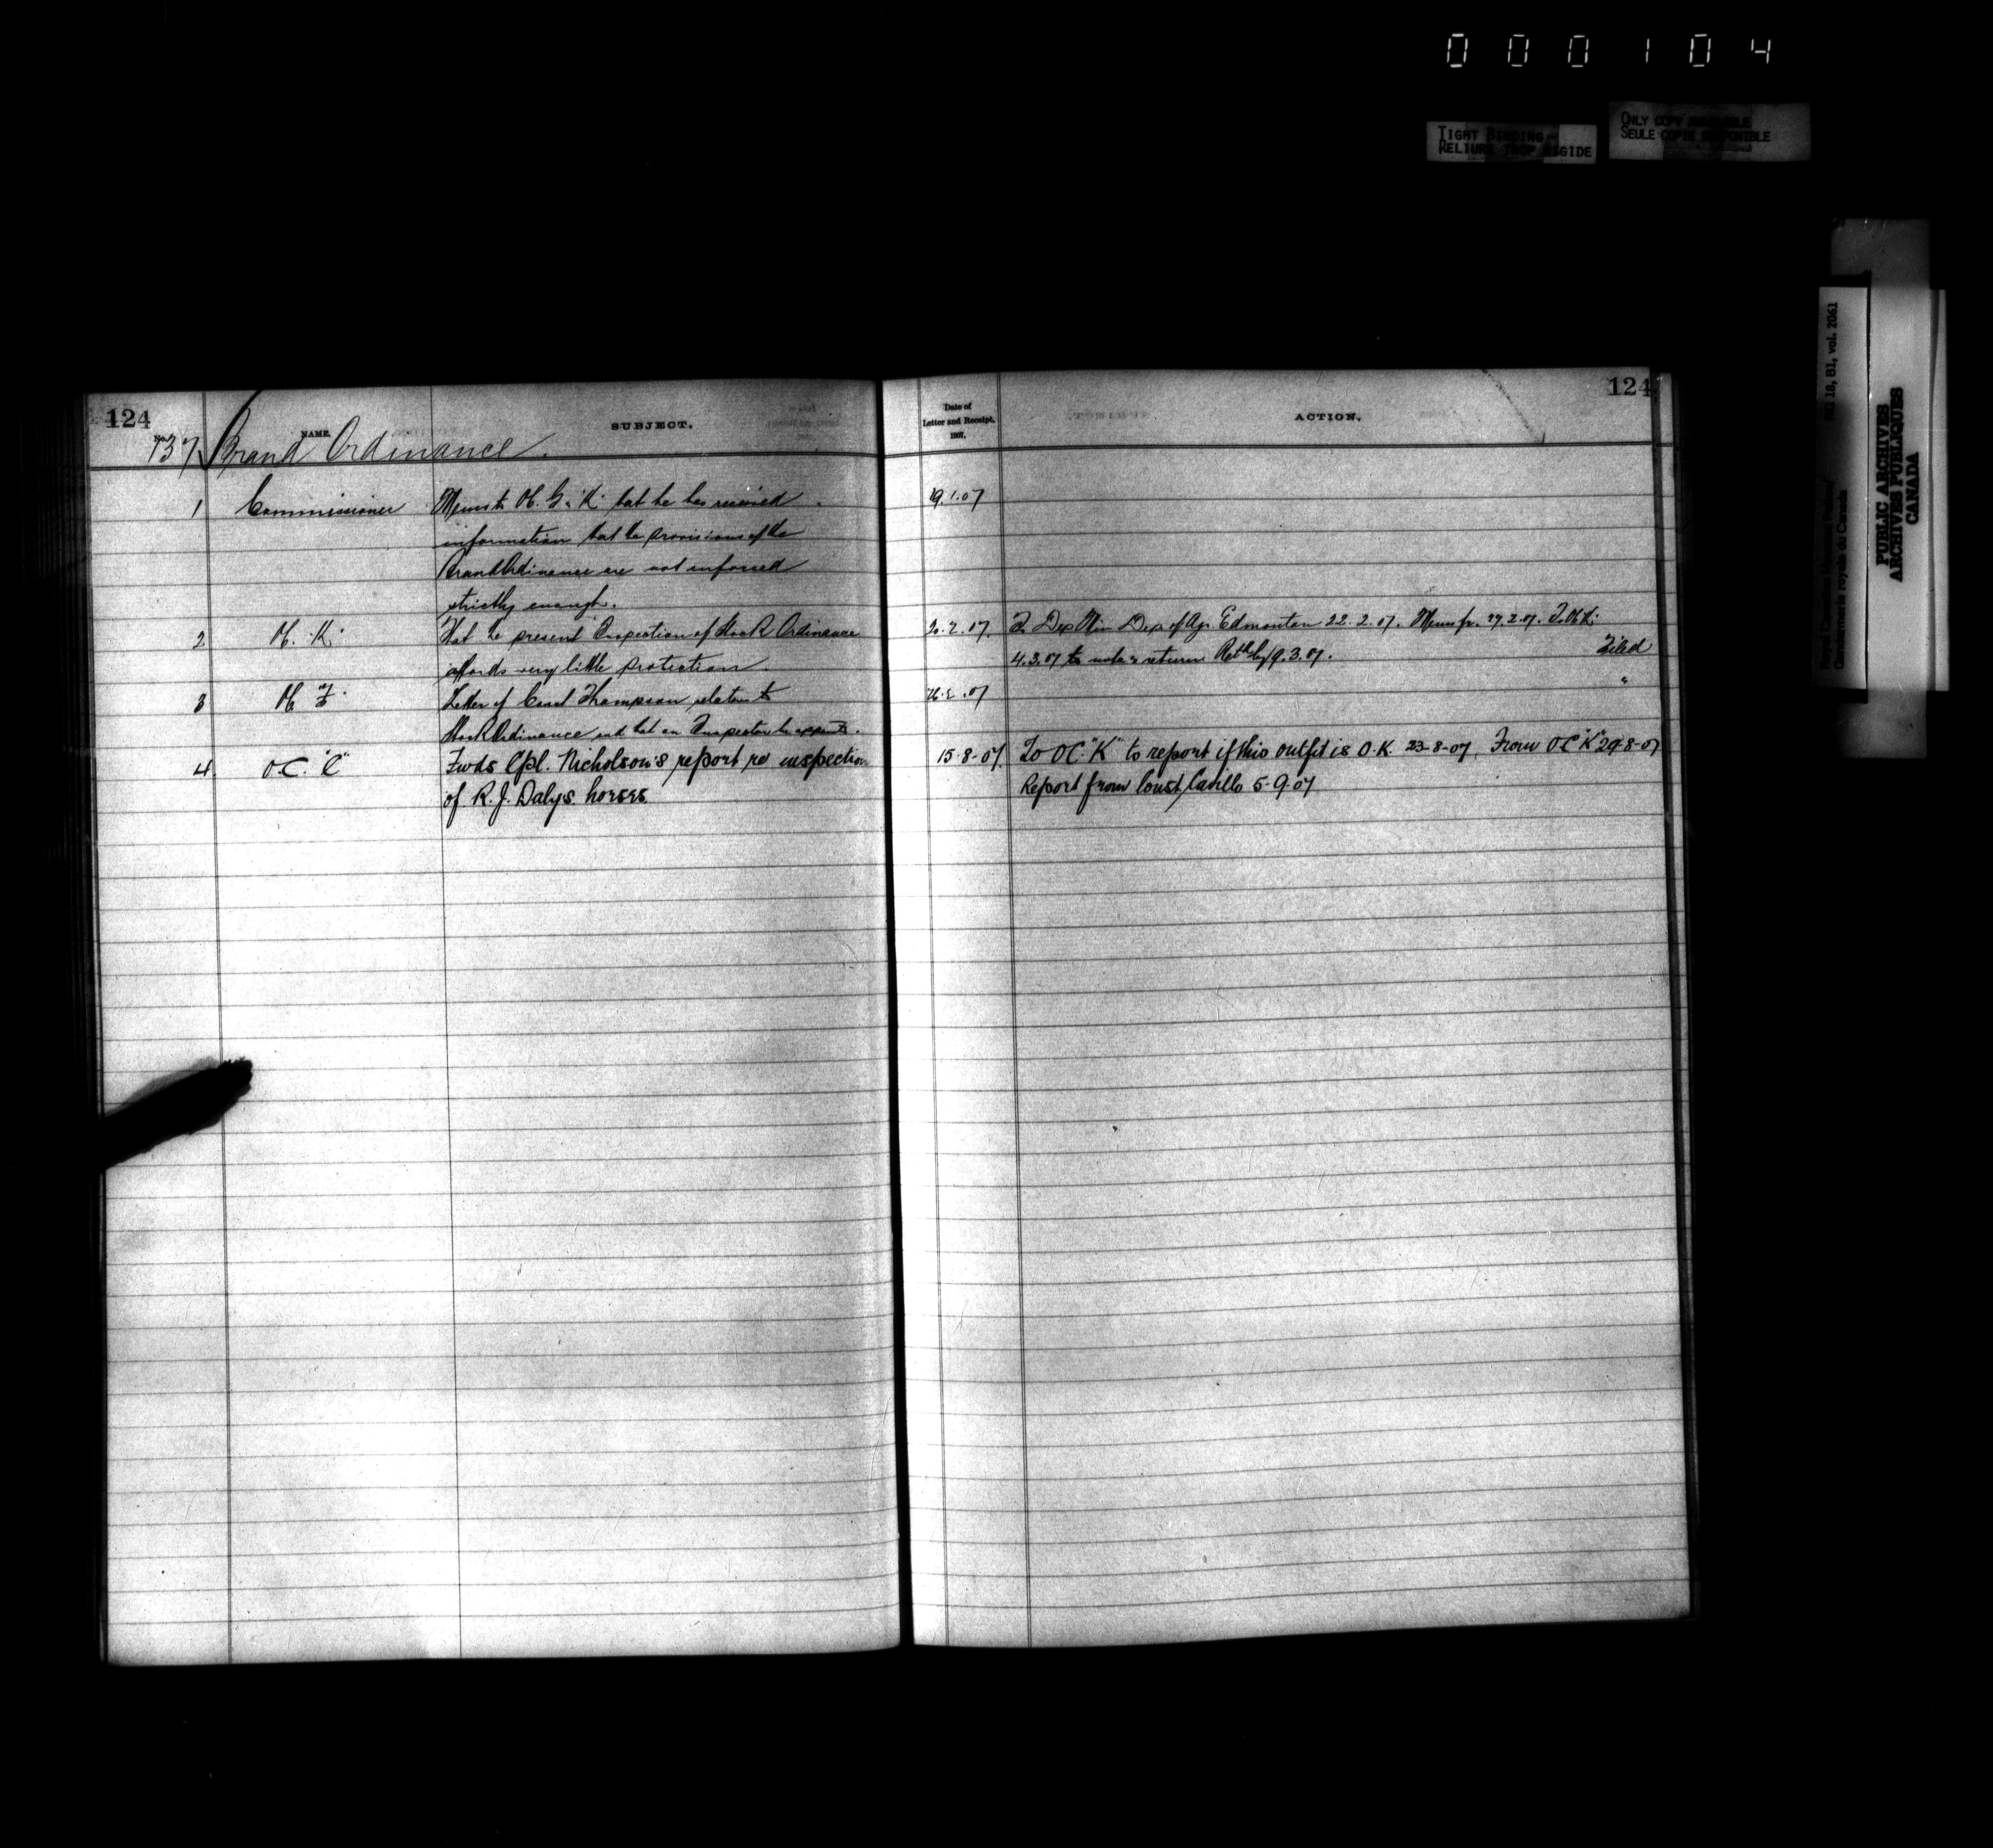 0 0 0 1 0 4
TIGHT BINDING
RELIURE TROP RIGIDE
ONLY COPY AVAILABLE
SEULE COPIE DISPONIBLE
RG 18, B1, vol. 2061
Royal Canadian Mounted Police/
Gendarmerie royale du Canada
PUBLIC ARCHIVES
ARCHIVES PUBLIQUES
CANADA
124
No. NAME. SUBJECT.
137 Brand Ordinance.
1 Commissioner Memo to O.C. G & "K" that he has received
information that the provisions of the
Brand Ordinance are not enforced
strictly enough.
2 O.C. "K" That the present Inspection of Stock Ordinance
affords very little protection.
3 O.C. Letter of Const Thompson relative to
Stock Ordinance and that an Inspector be
4 O.C. "C" Fwds Cpl. Nicholson's report re inspection
of R. J. Daly's horses.
Date of
Letter and Receipt.
1907.
ACTION.
124
19.1.07
20.2.07. To Dep Min Dep of Agr. Edmonton 22.2.07. Memo fr. 27.2.07. To O.C. K.
4.3.07 to note & return. Retd by 9.3.07. Filed
26.2.07 "
15-8-07. To OC. "K" to report if this outfit is O.K. 23-8-07. From OC "K" 29-8-07
Report from Const 5-9-07